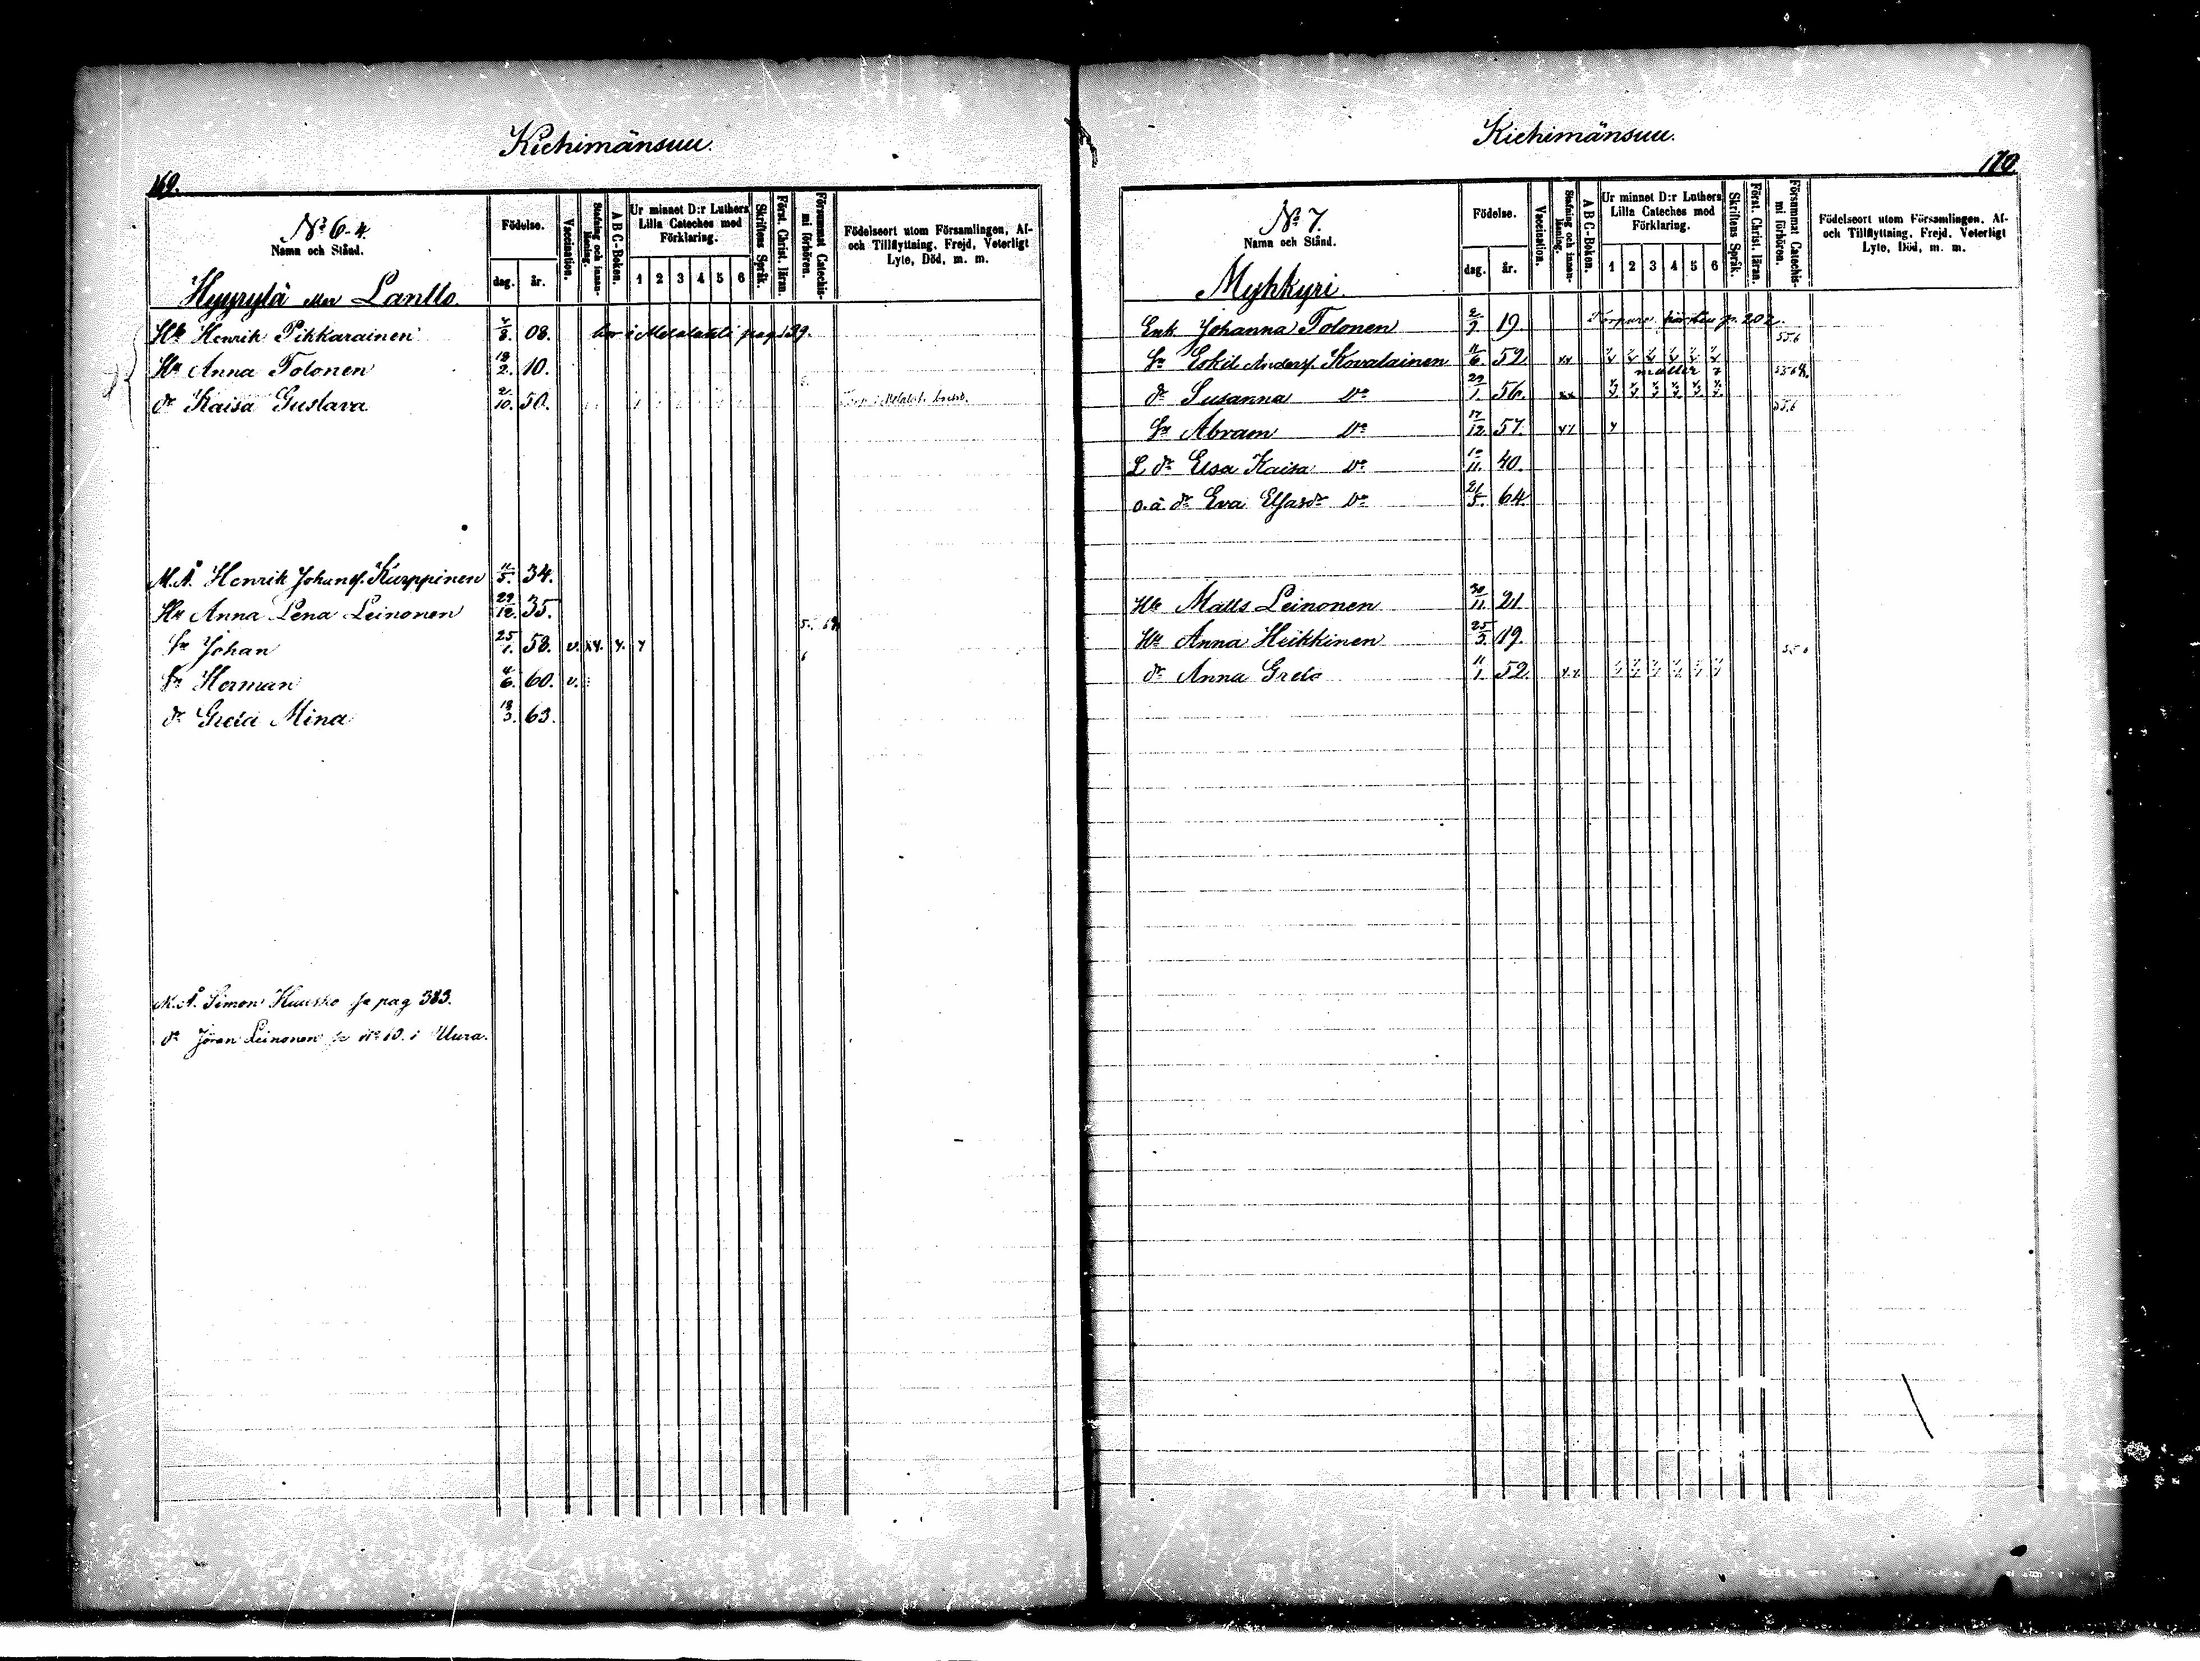 Kiehimänsuu.
169.
No 6-4.
Namn och Stånd.
Hyyrylä eller Lantto.
Födelse.
dag. år.
Vaccination.
Stafning och innan-läsning.
A B C-Boken.
Ur minnet D:r Luthers Lilla Cateches med Förklaring.
1 2 3 4 5 6
Skriftens Språk.
Först. Christ. läran.
Försummat Catechis-mi förhören.
Födelseort utom Församlingen, Af- och Tillflyttning, Frejd, Veterligt Lyte, Död, m. m.
Hb Henrik Pihkarainen 8. 08. bor i Melalahti pag 129.
Hu Anna Tolonen 18/2. 10.
dr Kaisa Gustava 21/10. 50.
M.Å. Henrik Johansf. Kurppinen 11/5. 34.
Hu Anna Lena Leinonen 29/12. 35.
Sn Johan 25/1. 58. v.
Sn Herman 4/6. 60. v.
dr Greta Mina 18/3. 63.
M.Å. Simon Huusko se pag 383.
do Jöran Leinonen se No 10. i Uura.
Kiehimänsuu.
170.
No 7.
Namn och Stånd.
Mykkyri.
Födelse.
dag. år.
Vaccination.
Stafning och innan-läsning.
A B C-Boken.
Ur minnet D:r Luthers Lilla Cateches med Förklaring.
1 2 3 4 5 6
Skriftens Språk.
Först. Christ. läran.
Försummat Catechis-mi förhören.
Födelseort utom Församlingen, Af- och Tillflyttning, Frejd, Veterligt Lyte, Död, m. m.
Enk. Johanna Tolonen 2/9 19
Sn Eskil Andersf. Kovalainen 11/6. 52.
dr Susanna Do 29/1. 56.
Sn Abram Do 17/12. 57.
L dr Elsa Kaisa Do 10/11. 40.
o.ä. dr Eva Elsasdr Do 21/5. 64.
Hb Matts Leinonen 30/11. 21
Hu Anna Heikkinen 25/3. 19.
dr Anna Greta 11/1. 52.